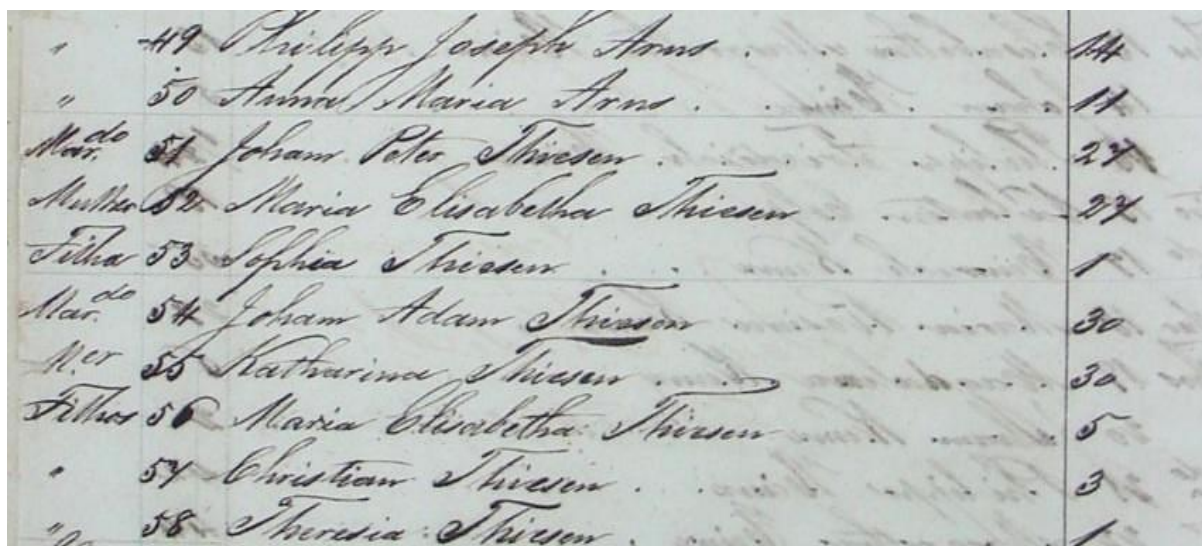 " 49 Philipp Joseph Arns . . 14
" 50 Anna Maria Arns . . . 11
Mar.do 51 Joham Peter Thiesen . . . 27
Mulher 52 Maria Elisabetha Thiesen . 27
Filha 53 Sophia Thiesen . . . 1
Mar.do 54 Joham Adam Thiesen 30
M.er 55 Katharina Thiesen . . . 30
Filhos 56 Maria Elisabetha Thiesen 5
" 57 Christian Thiesen . . . 3
" 58 Theresia Thiesen . . . 1